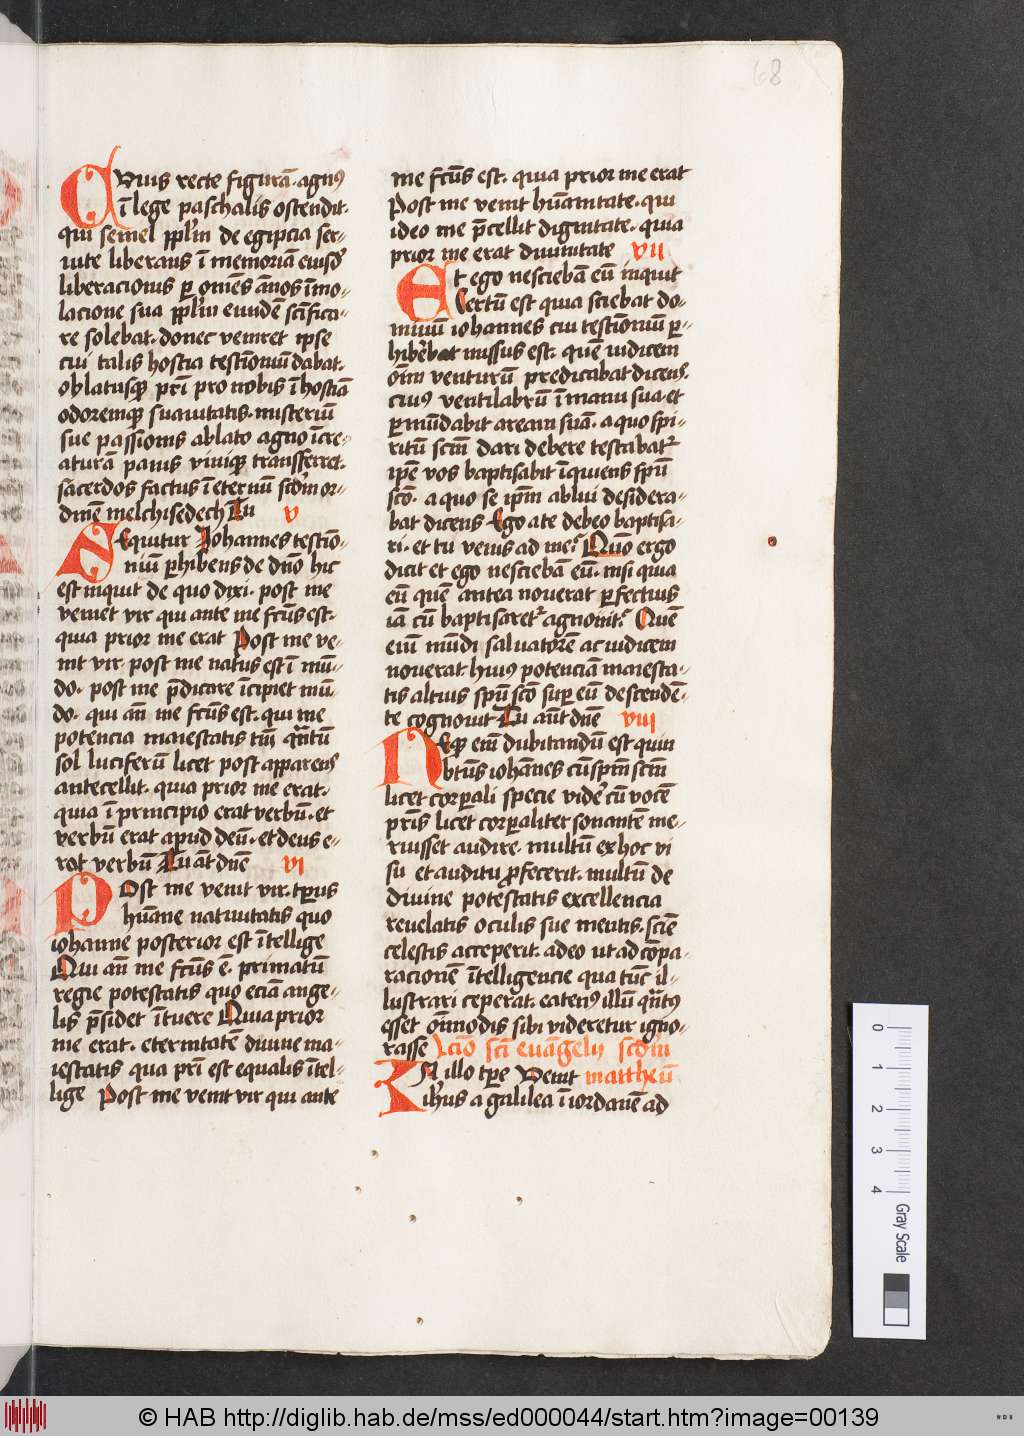 68
Cuius recte figurā· agnꝰ
ī lege paschalis ostendit·
qui semel pplm̄ de egipcia ser-
uite liberans ī memoriā eiusdē
liberacionis ꝑ om̄es ānos īmo-
lacione sua pplm̄ eundē scīfica-
re solebat· donec veniret ipse
cui talis hostia testīoniū dabat·
oblatusqꝫ prī pro nobis ī hostiā
odoremqꝫ suauitatis· misteriū
sue passionis ablato agno ī cre-
aturā panis viniqꝫ transferret·
sacerdos factus ī eternū scd̄m or-
dinē melchisedech Tu v
SEquitur Johannes testīo-
niū ꝑhibens de dn̄o hic
est inquit de quo dixi· post me
veniet vir qui ante me fcūs est·
quia prior me erat Post me ve-
nit vir· post me natus est ī mū-
do· post me p̄dicare īcipiet mū-
do· qui an̄ me fcūs est· qui me
potencia maiestatis tm̄ qn̄tū
sol luciferū licet post apparens
antecellit· quia prior me erat·
quia ī principio erat verbū· et
verbū erat apud deū· et deus e-
rat verbū Tu āt dn̄e vi
POst me venit vir· tꝑus
hūane natiuitatis quo
iohanne posterior est ītellige
Qui an̄ me fcūs ē· primatū
regie potestatis quo eciā ange-
lis p̄sidet ītuere Quia prior
me erat· eternitatē diuine ma-
iestatis qua prī est equalis ītel-
lige Post me venit vir qui ante
me fcūs est· quia prior me erat
Post me venit hūanitate· qui
ideo me p̄cellit dignitate· quia
prior me erat diuinitate vii
Et ego nesciebā eū inquit
Certū est quia sciebat do-
minū iohannes cui testīoniū ꝑ-
hibēbat missus est· quē iudicem
oīm venturū predicabat dicens·
cuiꝰ ventilabrū ī manu sua· et
ꝑmūdabit aream suā· a quo spi-
ritū scm̄ dari debere testabatr̄
ipē vos baptisabit īquiens spū
scō· a quo se ipm̄ ablui desidera-
bat dicens Ego a te debeo baptisa-
ri· et tu venis ad me Quō ergo
dicit et ego nesciebā eū· nisi quia
eū quē antea nouerat ꝑfectius
iā cū baptisaretr̄ agnouit Quē
eim̄ mūdi saluatorē ac iudicem
nouerat· huiꝰ potenciā maiesta-
tis altius spū scō super eū descendē-
te cognouit Tu aūt dn̄e viii
NEqꝫ eim̄ dubitandū est quin
btūs iohānes cū spm̄ scm̄
licet corꝑali specie videret̄ cū vocē
pris̄ licet corꝑaliter sonantē me-
ruisset audire· multū ex hoc vi
su et auditu ꝓfecerit· multū de
diuine potestatis excellencia
reuelatis oculis sue mentis· sciē
celestis acceperit· adeo ut ad cōpa-
racionē ītelligencie qua tūc il-
lustrari ceperat· eatenꝰ illū qn̄tꝰ
esset oīmodis sibi videretur igno-
rasse Lcīo sci euāgelij scd̄m
IN illo tꝑe Venit mattheū
ihūs a galilea ī iordanē ad
0
1
2
3
4
Gray Scale
© HAB http://diglib.hab.de/mss/ed000044/start.htm?image=00139